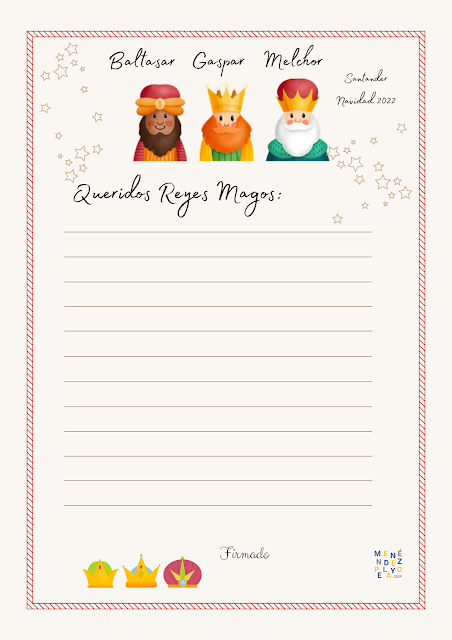 Baltasar Gaspar Melchor
Santander
Navidad 2022
Queridos Reyes Magos:
Firmado
MENÉ
NDEZ
PLYO
EA